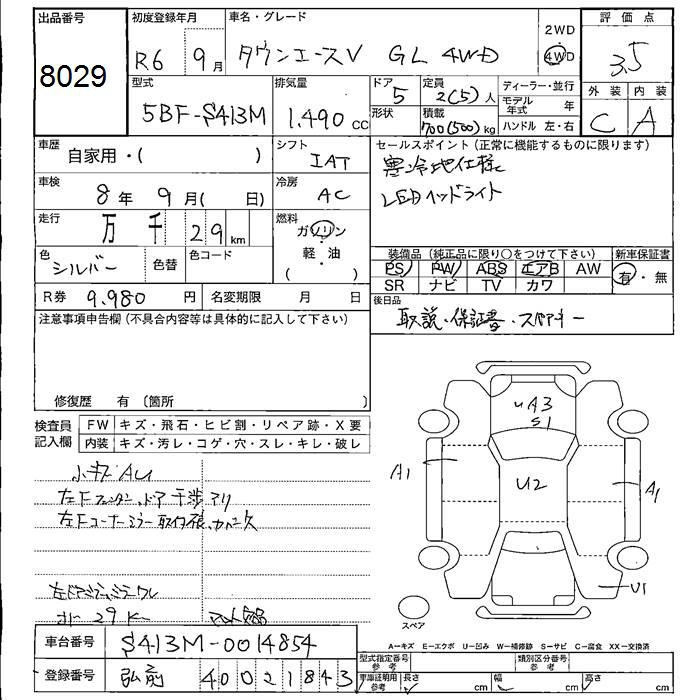 出品番号
8029
初度登録年月
R6 9月
車名・グレード
タウンエースV GL 4WD
2WD
4WD
評価点
3.5
外装 内装
C A
型式
5BF-S413M
排気量
1.490 cc
ドア
5
形状
定員
2(5)人
積載
700(500)kg
ディーラー・並行
モデル年式 年
ハンドル 左・右
車歴
自家用・( )
シフト
IAT
車検
8年 9月( 日)
冷房
AC
走行
万 千 29 km
燃料
ガソリン
・
軽・油
( )
色
シルバー
色替
色コード
R券 9.980 円
名変期限 月 日
セールスポイント(正常に機能するものに限ります)
寒冷地仕様
LEDヘッドライト
装備品(純正品に限り○をつけて下さい)
PS PW ABS エアB AW
SR ナビ TV カワ
新車保証書
有・無
後日品
取説・保証書・スペアキー
注意事項申告欄(不具合内容等は具体的に記入して下さい)
修復歴 有〔箇所 〕
検査員記入欄
FW キズ・飛石・ヒビ割・リペア跡・X要
内装 キズ・汚レ・コゲ・穴・スレ・キレ・破レ
小キズAU
左Fフェンダー、ドア干渉アリ
左Fコーナーミラー取付
29K
UA3
S1
A1
U2
A1
U1
スペア
A−キズ E−エクボ U−凹み W−補修跡 S−サビ C−腐食 XX−交換済
車台番号 S413M-0014854
登録番号 弘前 400 21843
型式指定番号 参考
類別区分番号 参考
車庫証明用 参考
長さ cm
幅 cm
高さ cm